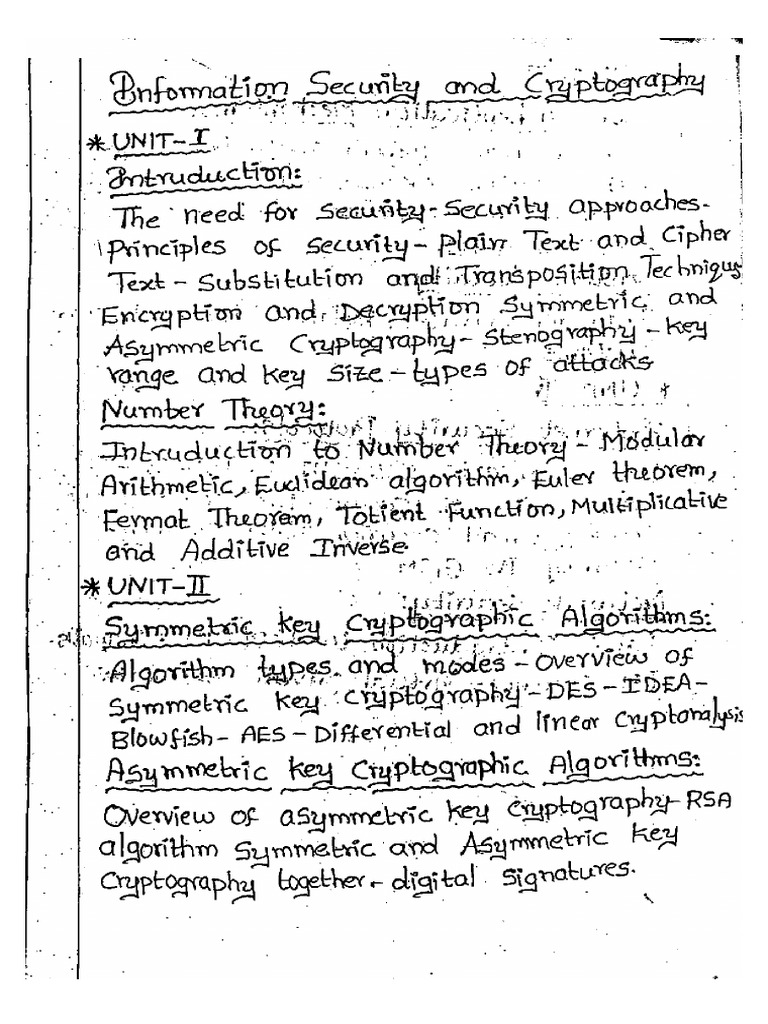 Information Security and Cryptography
* UNIT-I
Intruduction:
The need for security-security approaches-
Principles of security-Plain Text and Cipher
Text-Substitution and Transposition Techniqus
Encryption and Decryption Symmetric and
Asymmetric Cryptography-Stenography-key
range and key size-types of attacks
Number Theory:
Intruduction to Number Theory-Modular
Arithmetic, Euclidean algorithm, Euler theorem,
Fermat Theorem, Totient Function, Multiplicative
and Additive Inverse
* UNIT-II
Symmetric key Cryptographic Algorithms:
Algorithm types and modes-overview of
Symmetric key cryptography-DES-IDEA-
Blowfish-AES-Differential and linear Cryptanalysis
Asymmetric key Cryptographic Algorithms:
Overview of asymmetric key cryptography-RSA
algorithm symmetric and Asymmetric key
Cryptography together-digital signatures.